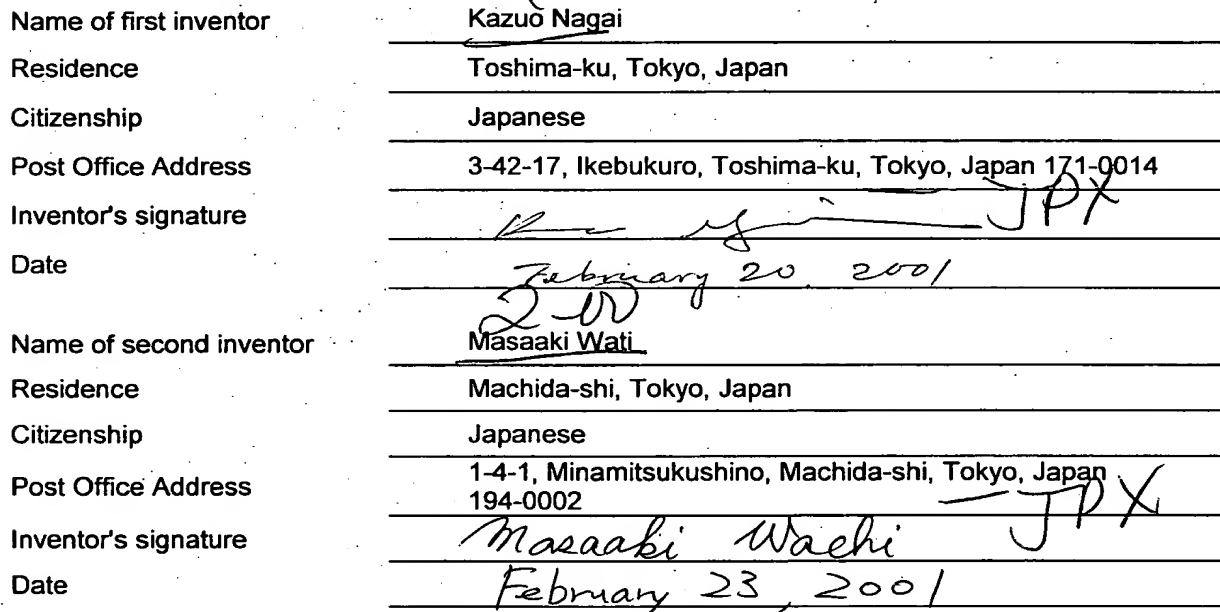 Name of first inventor Kazuo Nagai
Residence Toshima-ku, Tokyo, Japan
Citizenship Japanese
Post Office Address 3-42-17, Ikebukuro, Toshima-ku, Tokyo, Japan 171-0014
Inventor's signature JPX
Date February 20, 2001
2-00
Name of second inventor Masaaki Wati
Residence Machida-shi, Tokyo, Japan
Citizenship Japanese
Post Office Address 1-4-1, Minamitsukushino, Machida-shi, Tokyo, Japan
194-0002 JPX
Inventor's signature Masaaki Wachi
Date February 23, 2001